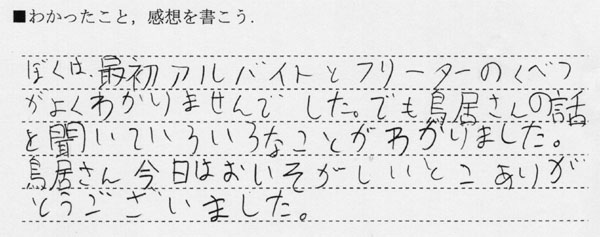 ■わかったこと，感想を書こう．
ぼくは、最初アルバイトとフリーターのくべつ
がよくわかりませんでした。でも鳥居さんの話
を聞いていろいろなことがわかりました。
鳥居さん今日はおいそがしいとこありが
とうございました。